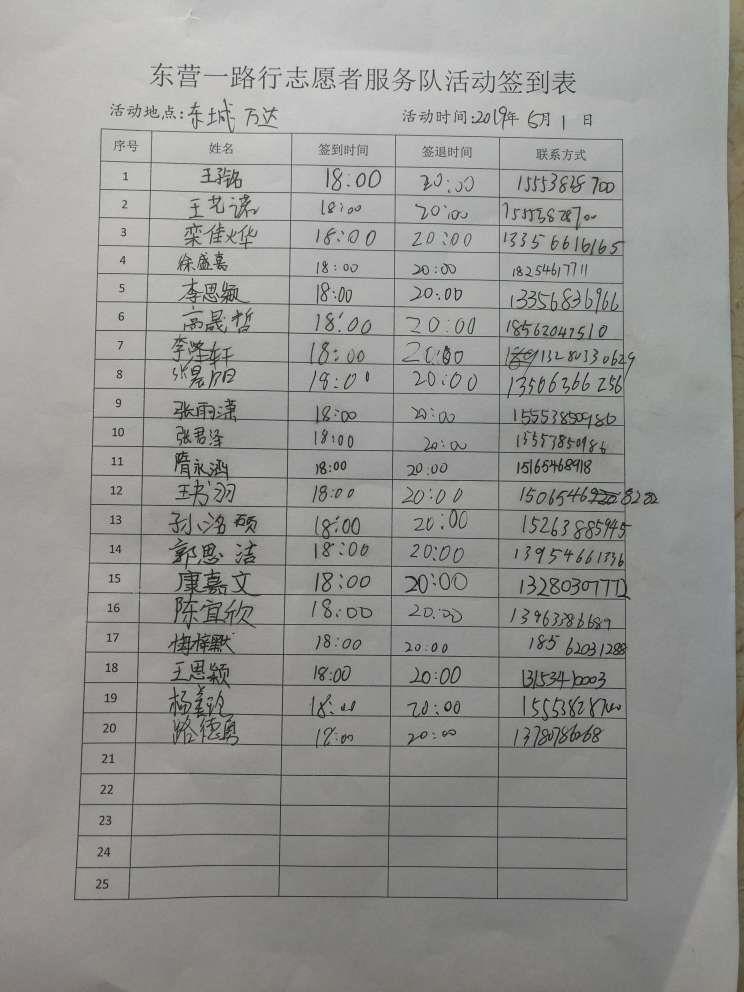 东营一路行志愿者服务队活动签到表
活动地点:东城 万达 活动时间:2019年 5月 1 日
序号 姓名 签到时间 签退时间 联系方式
1 王孜铭 18:00 20:00 15553828700
2 王艺诺 18:00 20:00 15553828700
3 栾佳烨 18:00 20:00 13356616165
4 徐盛嘉 18:00 20:00 18254617711
5 李思颖 18:00 20:00 13356836966
6 高晟哲 18:00 20:00 18562047510
7 李泽轩 18:00 20:00 13280330629
8 张昊阳 18:00 20:00 13506366256
9 张雨潇 18:00 20:00 15553850986
10 张君泽 18:00 20:00 15553850986
11 隋永涵 18:00 20:00 15165468918
12 王书羽 18:00 20:00
13 孙洺硕 18:00 20:00 15263885945
14 郭思洁 18:00 20:00 13954661336
15 康嘉文 18:00 20:00 13280307772
16 陈宜欣 18:00 20:00 13963386689
17 梅梓默 18:00 20:00 18562031288
18 王思颖 18:00 20:00 13153410003
19 杨 18:00 20:00 15553828700
20 路德勇 18:00 20:00 13780786068
21
22
23
24
25